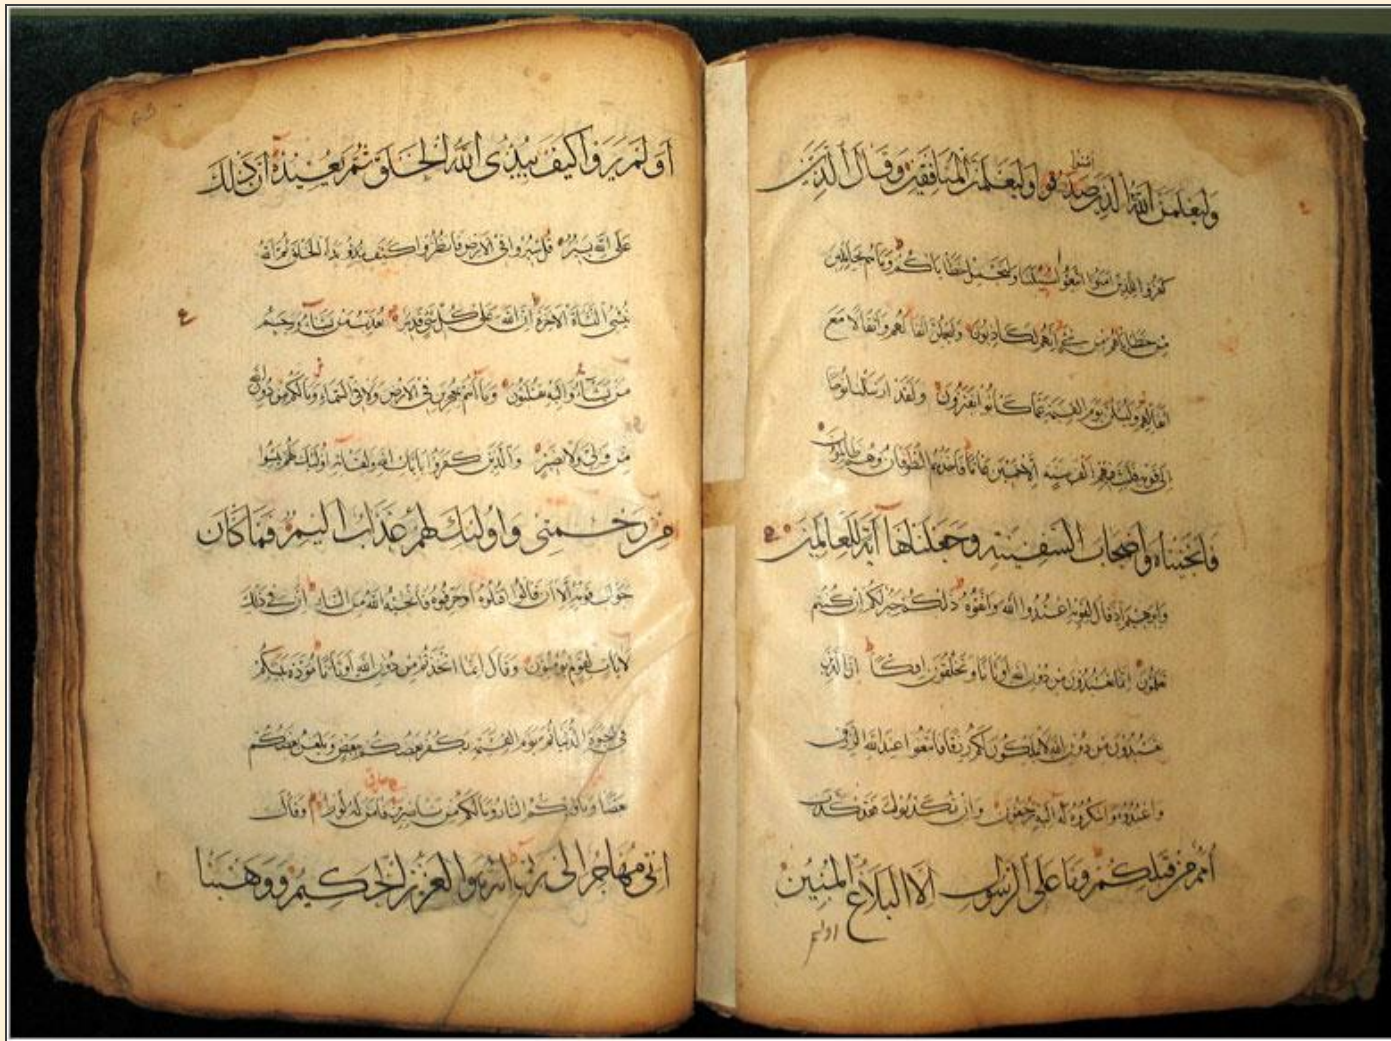 امنوا
وليعلمن الله الذين صدقوا وليعلمن المنافقين وقال الذين
كفروا للذين امنوا اتبعوا سبيلنا ولنحمل خطاياكم وما هم بحاملين
من خطاياهم من شئ انهم لكاذبون وليحملن اثقالهم واثقالا مع
اثقالهم وليسئلن يوم القيمة عما كانوا يفترون ولقد ارسلنا نوحا
الى قومه فلبث فيهم الف سنة الا خمسين عاما فاخذهم الطوفان وهم ظالمون
فانجيناه واصحاب السفينة وجعلناها آية للعالمين
وابرهيم اذ قال لقومه اعبدوا الله واتقوه ذلكم خير لكم ان كنتم
تعلمون انما تعبدون من دون الله اوثانا وتخلقون افكا ان الذين
تعبدون من دون الله لا يملكون لكم رزقا فابتغوا عند الله الرزق
واعبدوه واشكروا له اليه ترجعون وان تكذبوا فقد كذب
امم من قبلكم وما على الرسول الا البلاغ المبين
اولم
اولم يروا كيف يبدئ الله الخلق ثم يعيده ان ذلك
على الله يسير قل سيروا فى الارض فانظروا كيف بدأ الخلق ثم الله
ينشئ النشاة الاخرة ان الله على كل شئ قدير يعذب من يشاء ويرحم
من يشاء واليه تقلبون وما انتم بمعجزين فى الارض ولا فى السماء وما لكم من دون الله
من ولى ولا نصير والذين كفروا بايات الله ولقائه اولئك يئسوا
من رحمتى واولئك لهم عذاب اليم فما كان
جواب قومه الا ان قالوا اقتلوه او حرقوه فانجيه الله من النار ان فى ذلك
لايات لقوم يؤمنون وقال انما اتخذتم من دون الله اوثانا مودة بينكم
فى الحيوة الدنيا ثم يوم القيمة يكفر بعضكم ببعض ويلعن بعضكم
بعضا وماويكم النار وما لكم من ناصرين فامن له لوط وقال
انى مهاجر الى ربى انه هو العزيز الحكيم ووهبنا